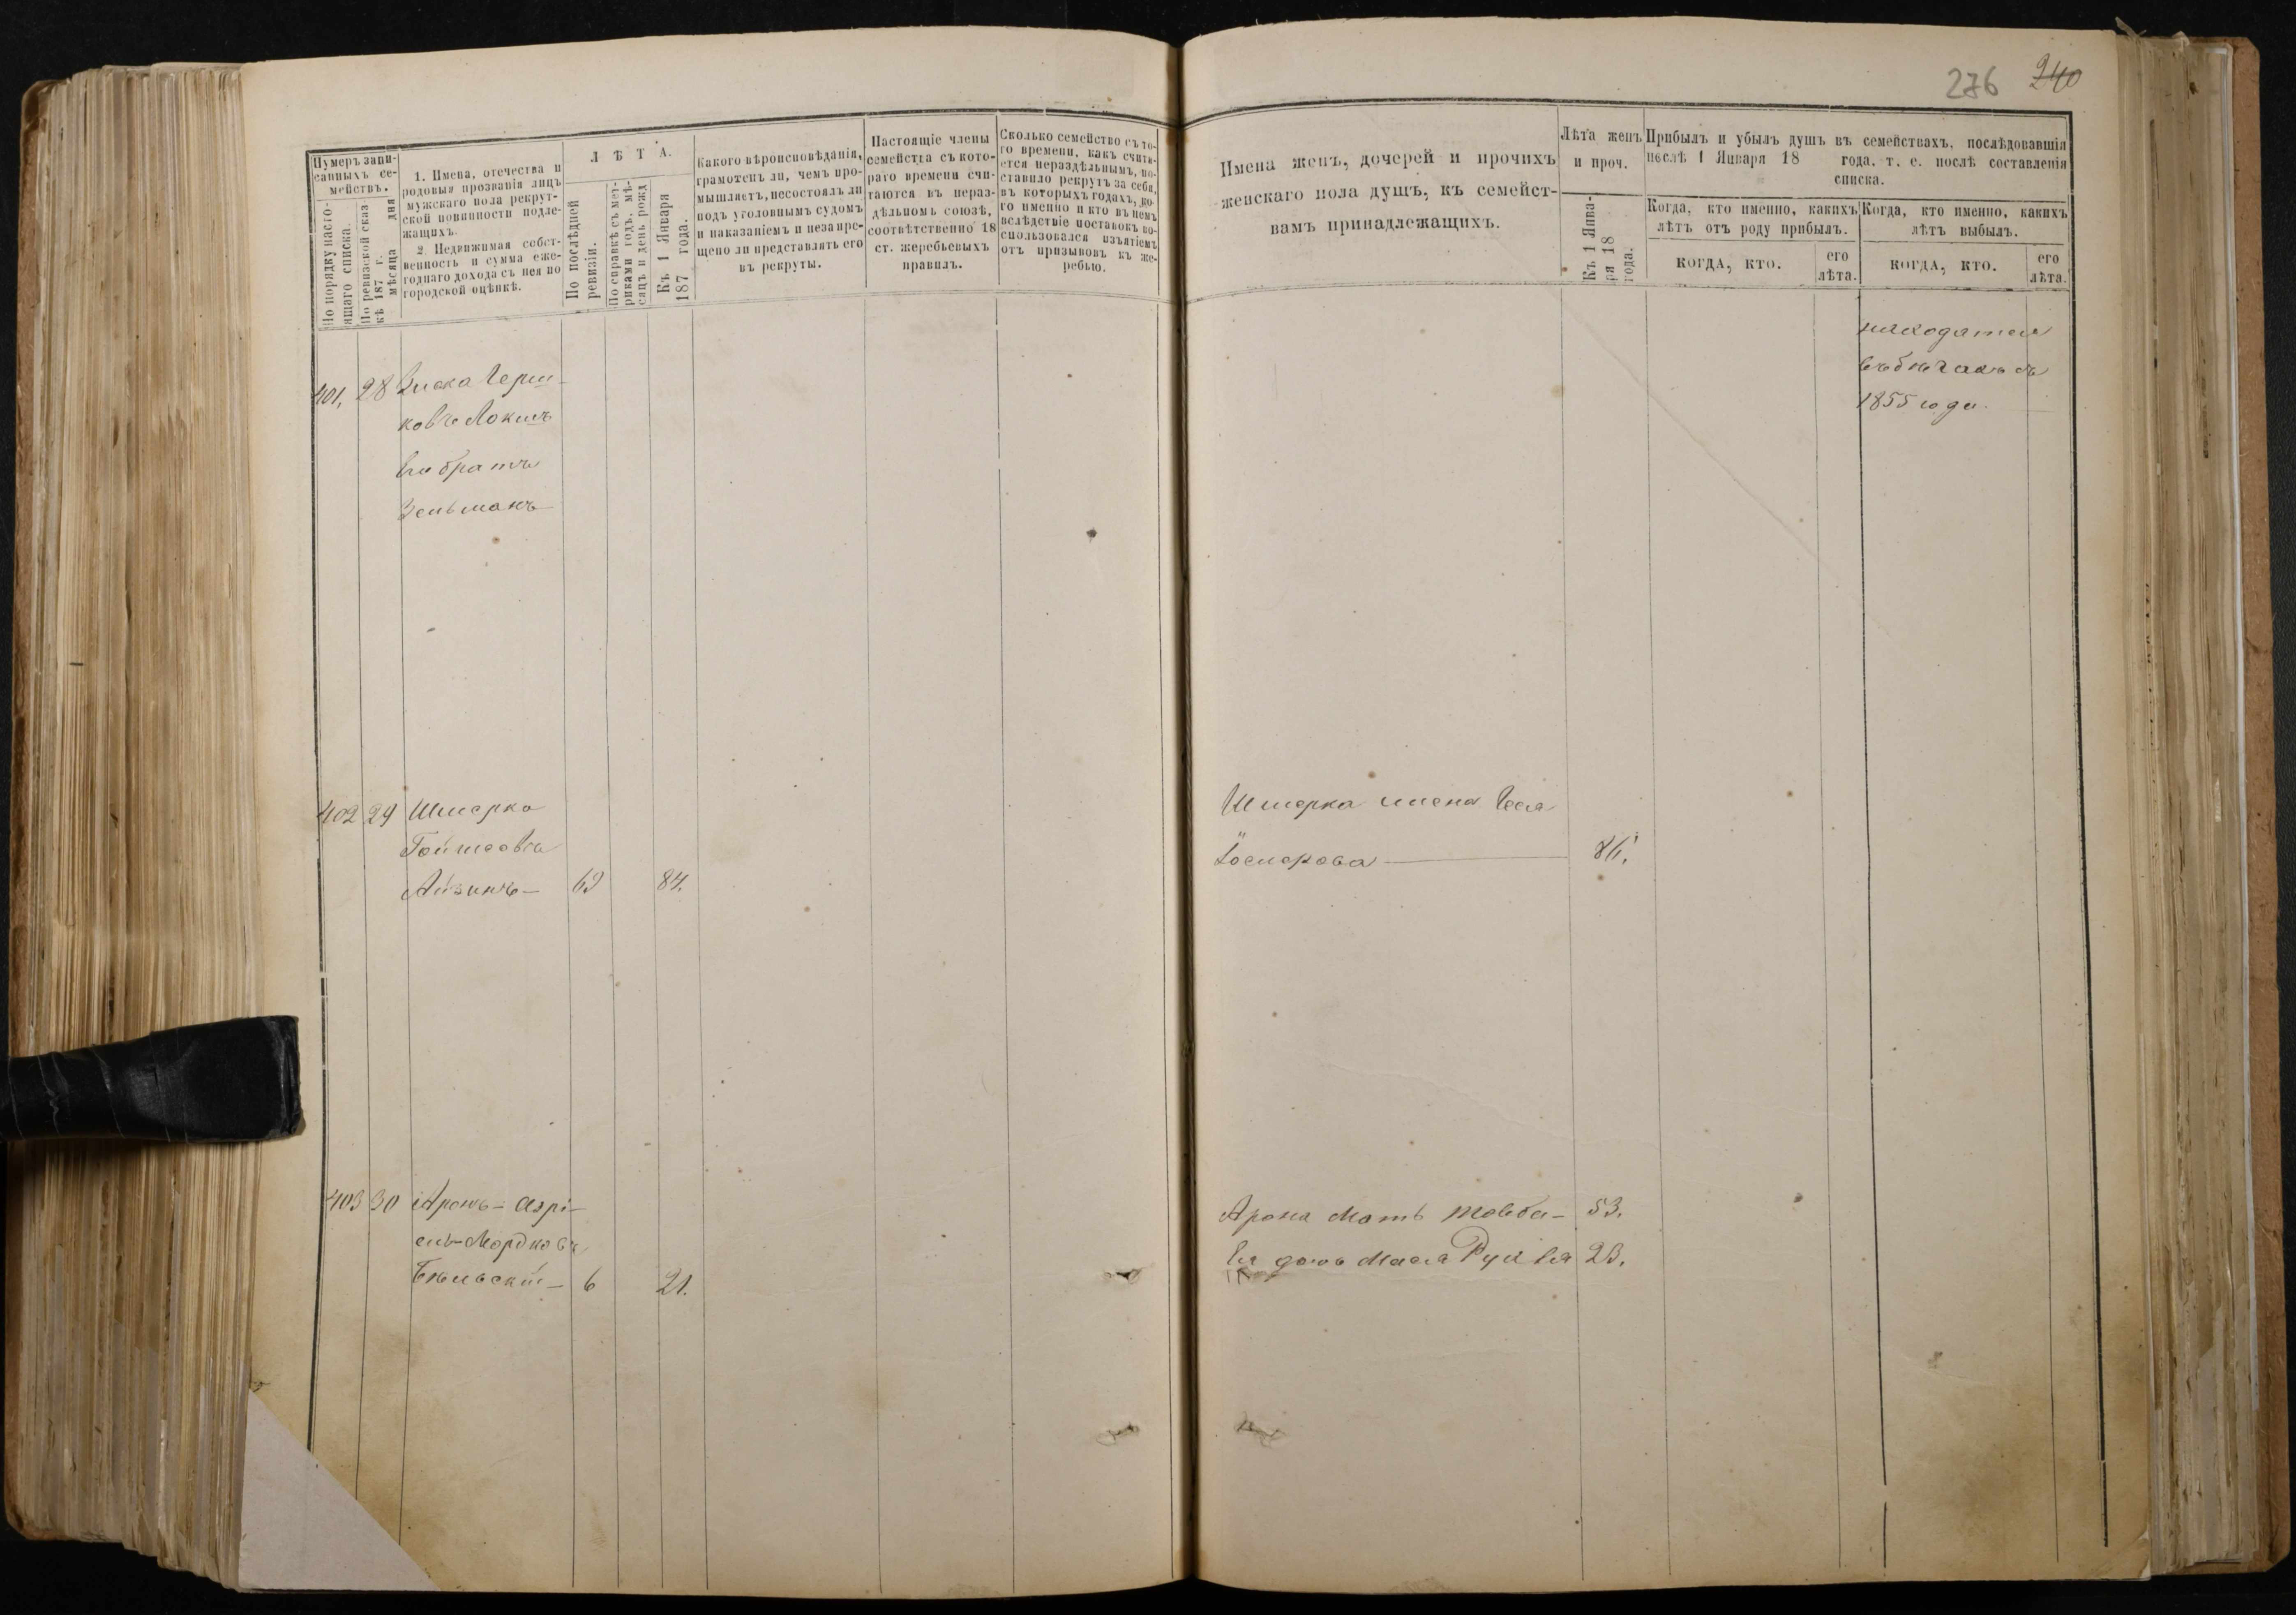 276 240
Нумеръ запи-
санныхъ се-
мействъ.
По порядку насто-
ящаго списка.
По ревизской сказ
кѣ 187 г.
мѣсяца дня
1. Имена, отечества и
родовыя прозванія лицъ
мужскаго пола рекрут-
ской повинности подле-
жащихъ.
2. Недвижимая собст-
венность и сумма еже-
годнаго дохода съ нея по
городской оцѣнкѣ.
Л Ѣ Т А.
По послѣдней
ревизіи.
По справкѣ съ мет-
риками годъ, мѣ-
сяцъ и день рожд
Къ 1 Января
187 года.
Какого вѣроисповѣданія,
грамотенъ ли, чемъ про-
мышляетъ, несостоялъ ли
подъ уголовнымъ судомъ
и наказаніемъ и незапре-
щено ли представлять его
въ рекруты.
Настоящіе члены
семейства съ кото-
раго времени счи-
таются въ нераз-
дѣльномъ союзѣ,
соотвѣтственно 18
ст. жеребьевыхъ
правилъ.
Сколько семейство съ то-
го времени, какъ счита-
ется нераздѣльнымъ, по-
ставило рекрутъ за себя,
въ которыхъ годахъ, ко-
го именно и кто въ немъ
вслѣдствіе поставокъ во-
спользовался изъятіемъ
отъ призывовъ къ же-
ребью.
Имена женъ, дочерей и прочихъ
женскаго пола душъ, къ семейст-
вамъ принадлежащихъ.
Лѣта женъ
и проч.
Къ 1 Янва-
ря 18
года.
Прибылъ и убылъ душъ въ семействахъ, послѣдовавшія
послѣ 1 Января 18 года, т. е. послѣ составленія
списка.
Когда, кто именно, какихъ
лѣтъ отъ роду прибылъ.
КОГДА, КТО.
его
лѣта.
Когда, кто именно, какихъ
лѣтъ выбылъ.
КОГДА, КТО.
его
лѣта.
401. 28 Зиска Герш-
ковъ Локшъ
Его братъ
Зельманъ
находятся
въ бѣгахъ съ
1855 года.
402 29 Шмерка
Айзикъ 69 84.
Шмерка жена Геся
86.
403 30 Аронъ-Азрi-
ель Мордковъ
Бѣльскiй 6 21.
Арона мать Товба 53.
Ея дочь Мася Рухля 23.